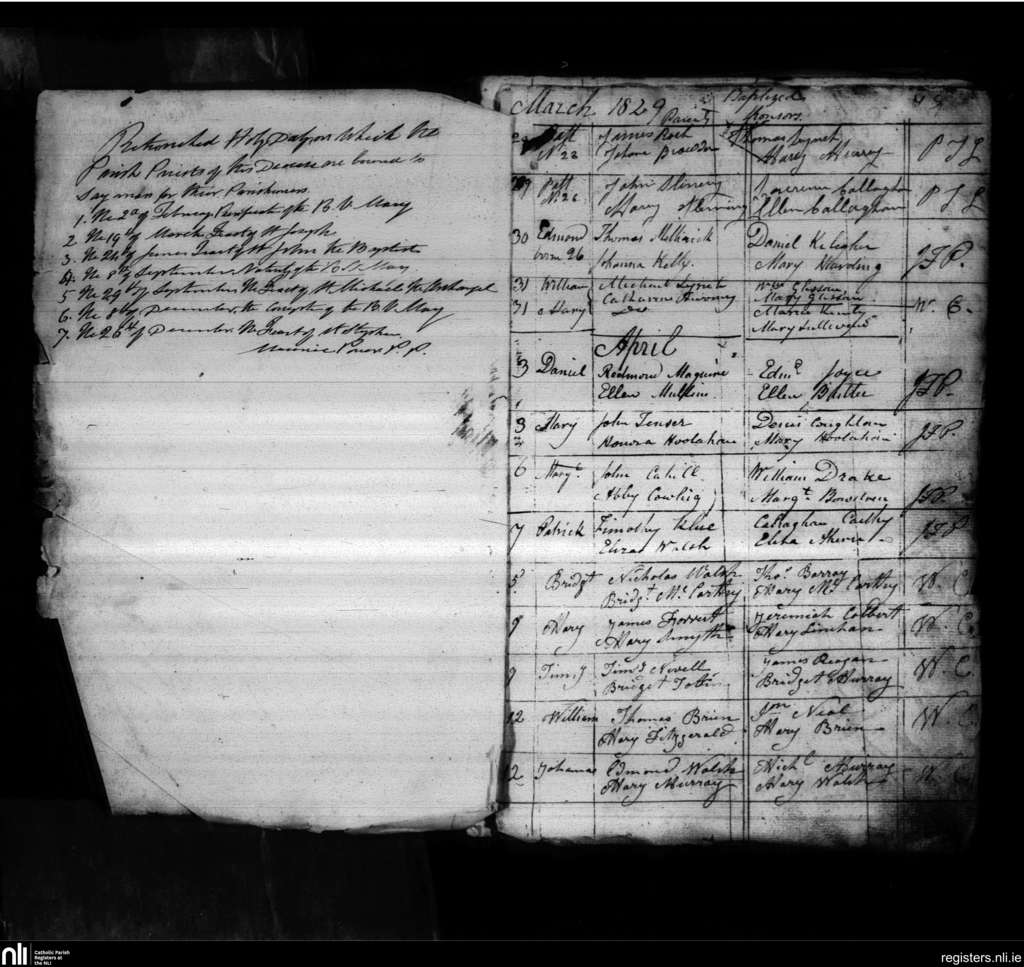 Retrenched Holy Days on which the
Parish Priests of this Diocese are bound to
say mass for their Parishioners
1. The 2d of February Purification of the B. V. Mary
2. The 19th of March Feast of St Joseph
3. The 24th of June Feast of St John the Baptist
4. The 8th of September Nativity of the B. V. Mary
5 The 29th of September The Feast of St Michael the Archangel
6. The 8th of December, the Conception of the B. V. Mary
7. The 26th of December. The Feast of St Stephen
Maurice Power P. P.
March 1829 Parents Baptized Sponsors.
Patt James Roch Thomas
No 22 Johana Mary
29 Patt John P J L
Mary Fleming Ellen Callaghan
30 Edmond Thomas Daniel Keleher
born 26 Johanna Kelly. Mary Harding J F P.
31 William Michael Lynch Wm Glissan
31 Mary Catharine Do Mary Glissan W. C.
Mary Sullivan
April
3 Daniel Redmond Maguire Edmd Joyce
Ellen Mullins Ellen J F P.
3 Mary John Denis Coughlan
Honora Hoolahan Mary Hoolahan J F P.
6 Margt John Cahill William Drake
Abby Cowhig Margt J F P.
7 Patrick Timothy Callaghan Carthy J F P
Eliza Walsh Eliza Ahern
5 Bridgt Nicholas Walsh Thos Barray W. C
Bridgt McCarthy Mary McCarthy
9 Mary James Forrest Jeremiah Colbert W. C.
Mary Smyth Mary Linehan
9 Timy Timy Nevell James Reagan W. C
Bridget Bridget Murray
12 William Thomas Brien Jon Neal W. C
Mary Fitzgerald. Mary Brien
12 Johanna Edmond Walsh Michl Murray W. C
Mary Murray Mary Walsh
nli
Catholic Parish
Registers at
the NLI
registers.nli.ie